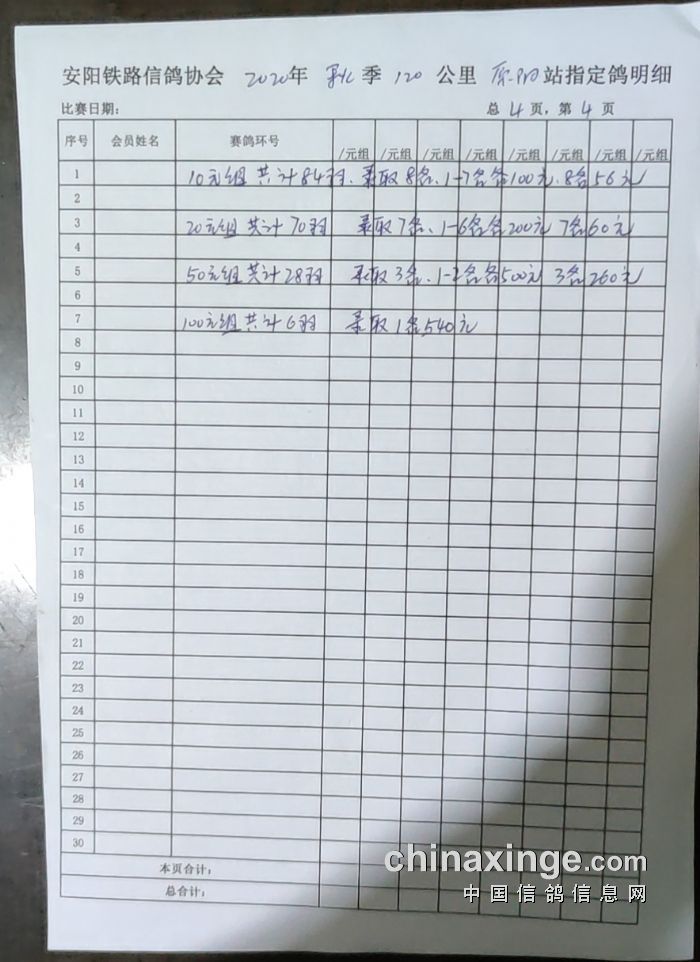 安阳铁路信鸽协会 2020年 秋季 120 公里 原阳站指定鸽明细
比赛日期: 总 4 页，第 4 页
序号 会员姓名 赛鸽环号 /元组 /元组 /元组 /元组 /元组 /元组 /元组 /元组
1 10元组 共计84羽. 录取8名、1-7名各100元.8名56元
2
3 20元组 共计70羽 录取7名、1-6名各200元 7名60元
4
5 50元组共计28羽 录取3名、1-2名各500元 3名260元
6
7 100元组共计6羽 录取1名540元
8
9
10
11
12
13
14
15
16
17
18
19
20
21
22
23
24
25
26
27
28
29
30
本页合计:
总合计:
chinaxinge.com
中国信鸽信息网